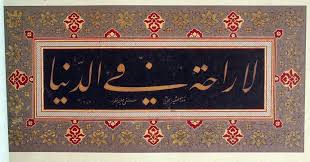 لا راحة في الدنيا